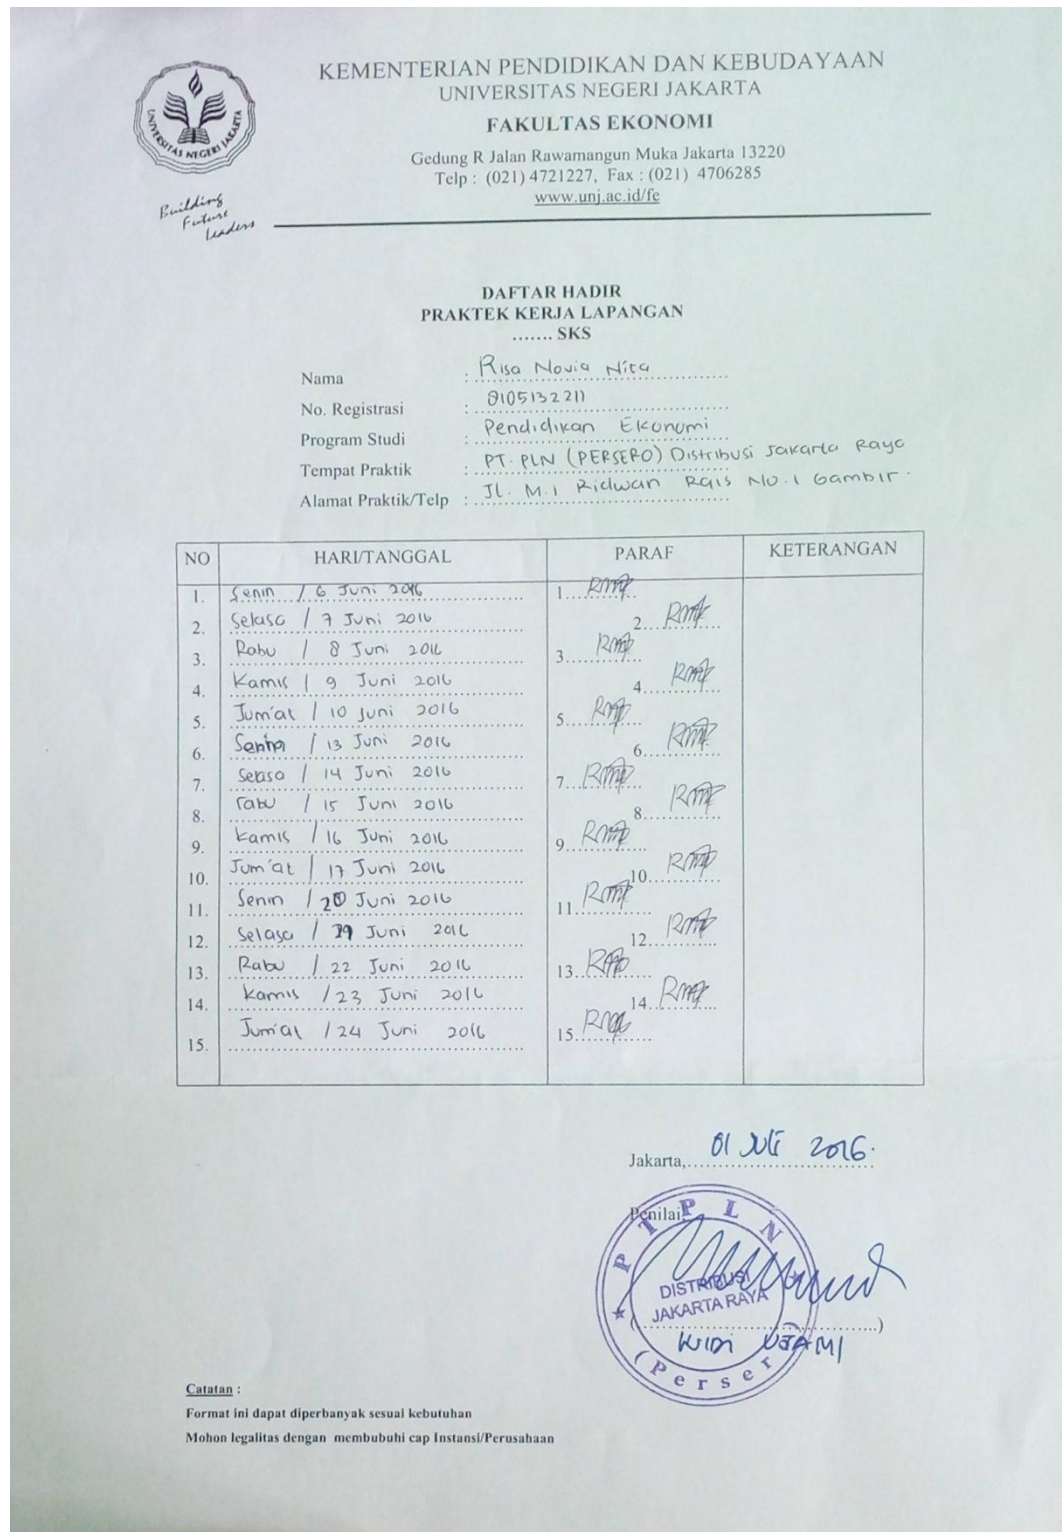 KEMENTERIAN PENDIDIKAN DAN KEBUDAYAAN
UNIVERSITAS NEGERI JAKARTA
FAKULTAS EKONOMI
Gedung R Jalan Rawamangun Muka Jakarta 13220
Telp : (021) 4721227, Fax : (021) 4706285
www.unj.ac.id/fe
UNIVERSITAS NEGERI JAKARTA
Building
Future
Leaders
DAFTAR HADIR
PRAKTEK KERJA LAPANGAN
....... SKS
Nama : Risa Novia Nita
No. Registrasi : 8105132211
Program Studi : Pendidikan Ekonomi
Tempat Praktik : PT. PLN (PERSERO) Distribusi Jakarta Raya
Alamat Praktik/Telp : JL. M.I Ridwan Rais No.1 Gambir.
NO HARI/TANGGAL PARAF KETERANGAN
1. Senin / 6 Juni 2016 1.
2. Selasa / 7 Juni 2016 2.
3. Rabu / 8 Juni 2016 3.
4. Kamis / 9 Juni 2016 4.
5. Jum'at / 10 Juni 2016 5.
6. Senin / 13 Juni 2016 6.
7. Selasa / 14 Juni 2016 7.
8. rabu / 15 Juni 2016 8.
9. kamis / 16 Juni 2016 9.
10. Jum'at / 17 Juni 2016 10.
11. Senin / 20 Juni 2016 11.
12. Selasa / Juni 2016 12.
13. Rabu / 22 Juni 2016 13.
14. Kamis / 23 Juni 2016 14.
15. Jum'at / 24 Juni 2016 15.
Jakarta, 01 Juli 2016.
Penilai
PT PLN
DISTRIBUSI
JAKARTA RAYA
(Persero)
(..............................)
WIDI UTAMI
Catatan :
Format ini dapat diperbanyak sesuai kebutuhan
Mohon legalitas dengan membubuhi cap Instansi/Perusahaan